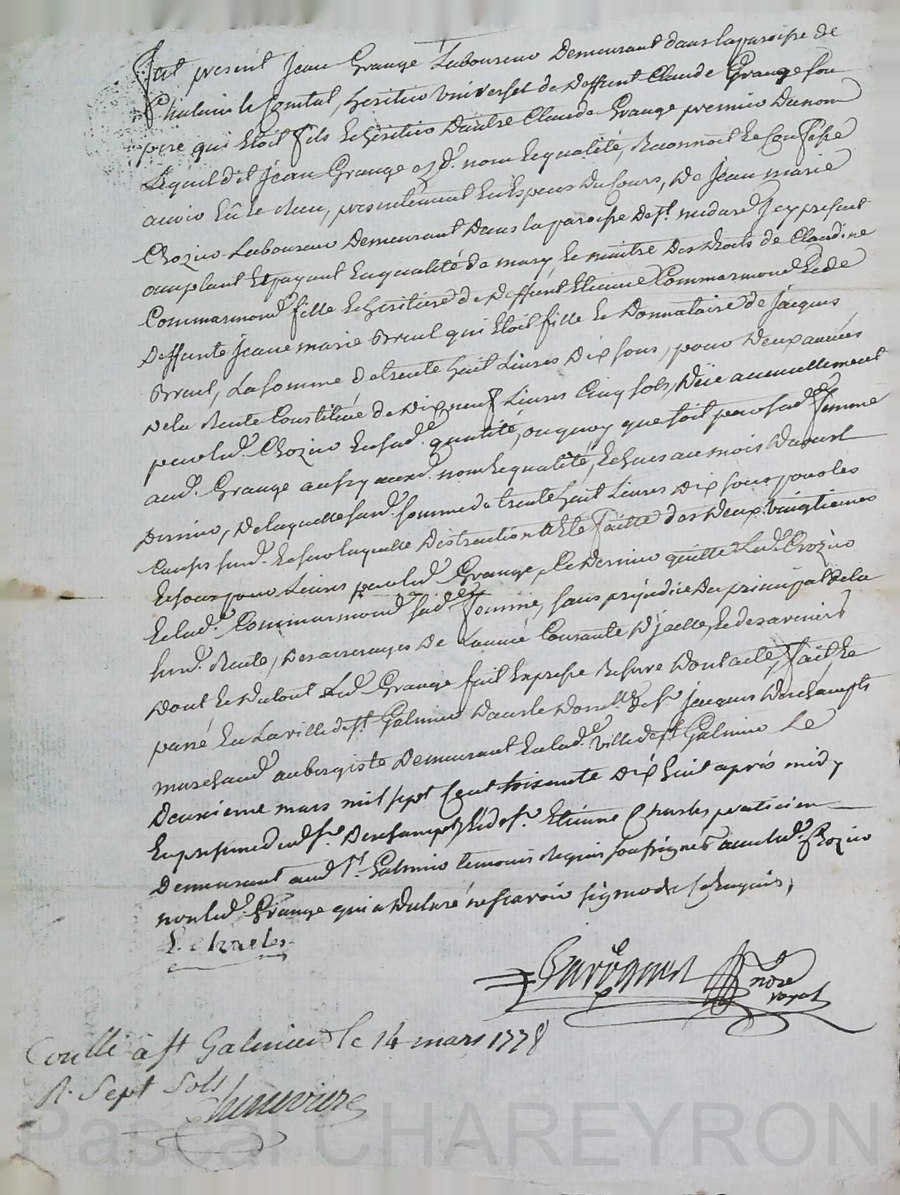 fut présent Jean Grange Laboureur Demeurant dans la paroisse de
Chalain le Comtal, heritier universel de deffunt Claude Grange son
pere qui étoit fils et heritier d'autre Claude Grange premier du nom
Lequel dit Jean Grange nom et qualité, Reconnoit et Confesse
avoir Eû et Reçu, présentement En Especes du Cours, De Jean marie
Crozier Laboureur Demeurant Dans la paroisse de st. midard Icy présent
acceptant Et payant En qualité de mary Et maitre Des droits de Claudine
Commarmond fille et heritiere de Deffunt Etienne Commarmond Et de
Deffunte Jeanne marie Breul qui étoit fille Et Donnataire de Jacques
Breul, La somme de trente huit Livres Dix sous, pour Deux années
De la Rente Constituée de Dix neuf Livres Cinq sols, Düe annuellement
par led. Crozier En sad. qualité, ou quoy que soit par sad. femme
aud. Grange aussy auxd. nom Et qualité, Echues au mois D'aoust
Dernier, De laquelle susd. somme de trente huit Livres Dix sous pour les
Causes susd. Et sur laquelle Distraction a Eté faitte des Deux vingtiemes
Et sous pour Livres par led. Grange, Ce Dernier quitte Led. Crozier
Et lad. Commarmond sad. femme, sans préjudice Du principal de la
susd. Rente, Des arrerages De L'année Courante D'jcelle, Et des avenirs
Dont Et Du tout Led. Grange fait Expresse Reserve Dont acte, fait Et
passé En La ville de st. Galmier Dans le Domlle. de sr. Jacques Deschamps
marchand aubergiste Demeurant En lad. ville de st. Galmier Le
Deuxieme mars mil sept Cent soixante Dix huit après midy
En présence dud. sr. Deschamps Et de sr. Etienne Charles praticien
Demeurant aud. st. Galmier temoins Requis soussignés avec led. Crozier
non led. Grange qui a Declaré ne scavoir signer de ce Enquis,
E. Charles
nore
royal
Conllé à st Galmier le 14 mars 1778
R. Sept Sols
Pascal CHAREYRON